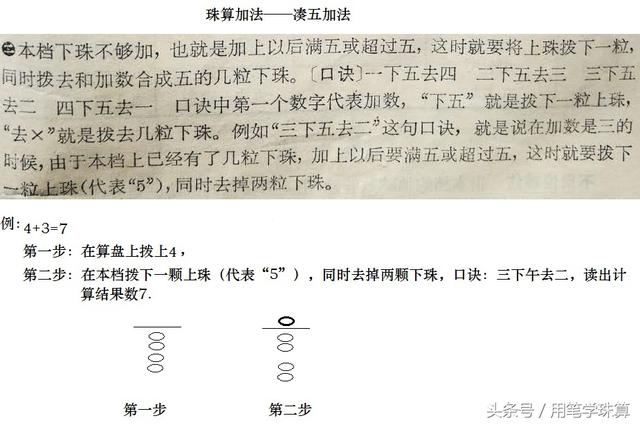 珠算加法——凑五加法
㊁本档下珠不够加，也就是加上以后满五或超过五，这时就要将上珠拨下一粒，
同时拨去和加数合成五的几粒下珠。〔口诀〕一下五去四 二下五去三 三下五
去二 四下五去一 口诀中第一个数字代表加数，“下五”就是拨下一粒上珠，
“去×”就是拨去几粒下珠。例如“三下五去二”这句口诀，就是说在加数是三的
时候，由于本档上已经有了几粒下珠，加上以后要满五或超过五，这时就要拨下
一粒上珠(代表“5”)，同时去掉两粒下珠。
例：4+3=7
第一步：在算盘上拨上4，
第二步：在本档拨下一颗上珠（代表“5”），同时去掉两颗下珠，口诀：三下午去二，读出计
算结果数7.
第一步
第二步
头条号 / 用笔学珠算